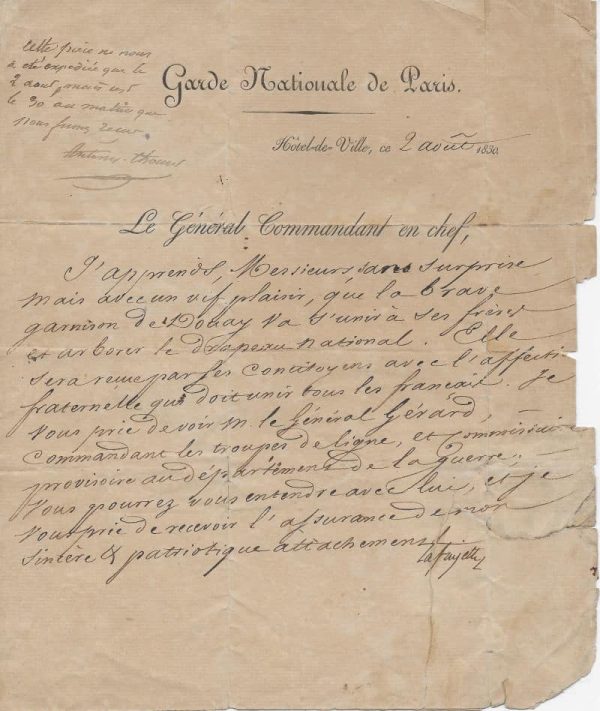 cette pièce ne nous
a été expédiée que le
2 aout, mais est
le 30 au matin que
nous fumes
Garde Nationale de Paris.
Hôtel-de-Ville, ce 2 août 1830.
Le Général Commandant en chef,
J'apprends, Messieurs sans surprise
mais avec un vif plaisir, que la brave
garnison de Douay va s'unir à ses frères
et arborer le drapeau national. Elle
sera reçue par ses concitoyens avec l'affecti
fraternelle qui doit unir tous les français. Je
vous prie de voir M. le Général Gérard,
commandant les troupes de ligne, et Commissaire
provisoire au département de la guerre;
vous pourrez vous entendre avec lui, et je
vous prie de recevoir l'assurance de mon
sincère & patriotique attachement
Lafayette